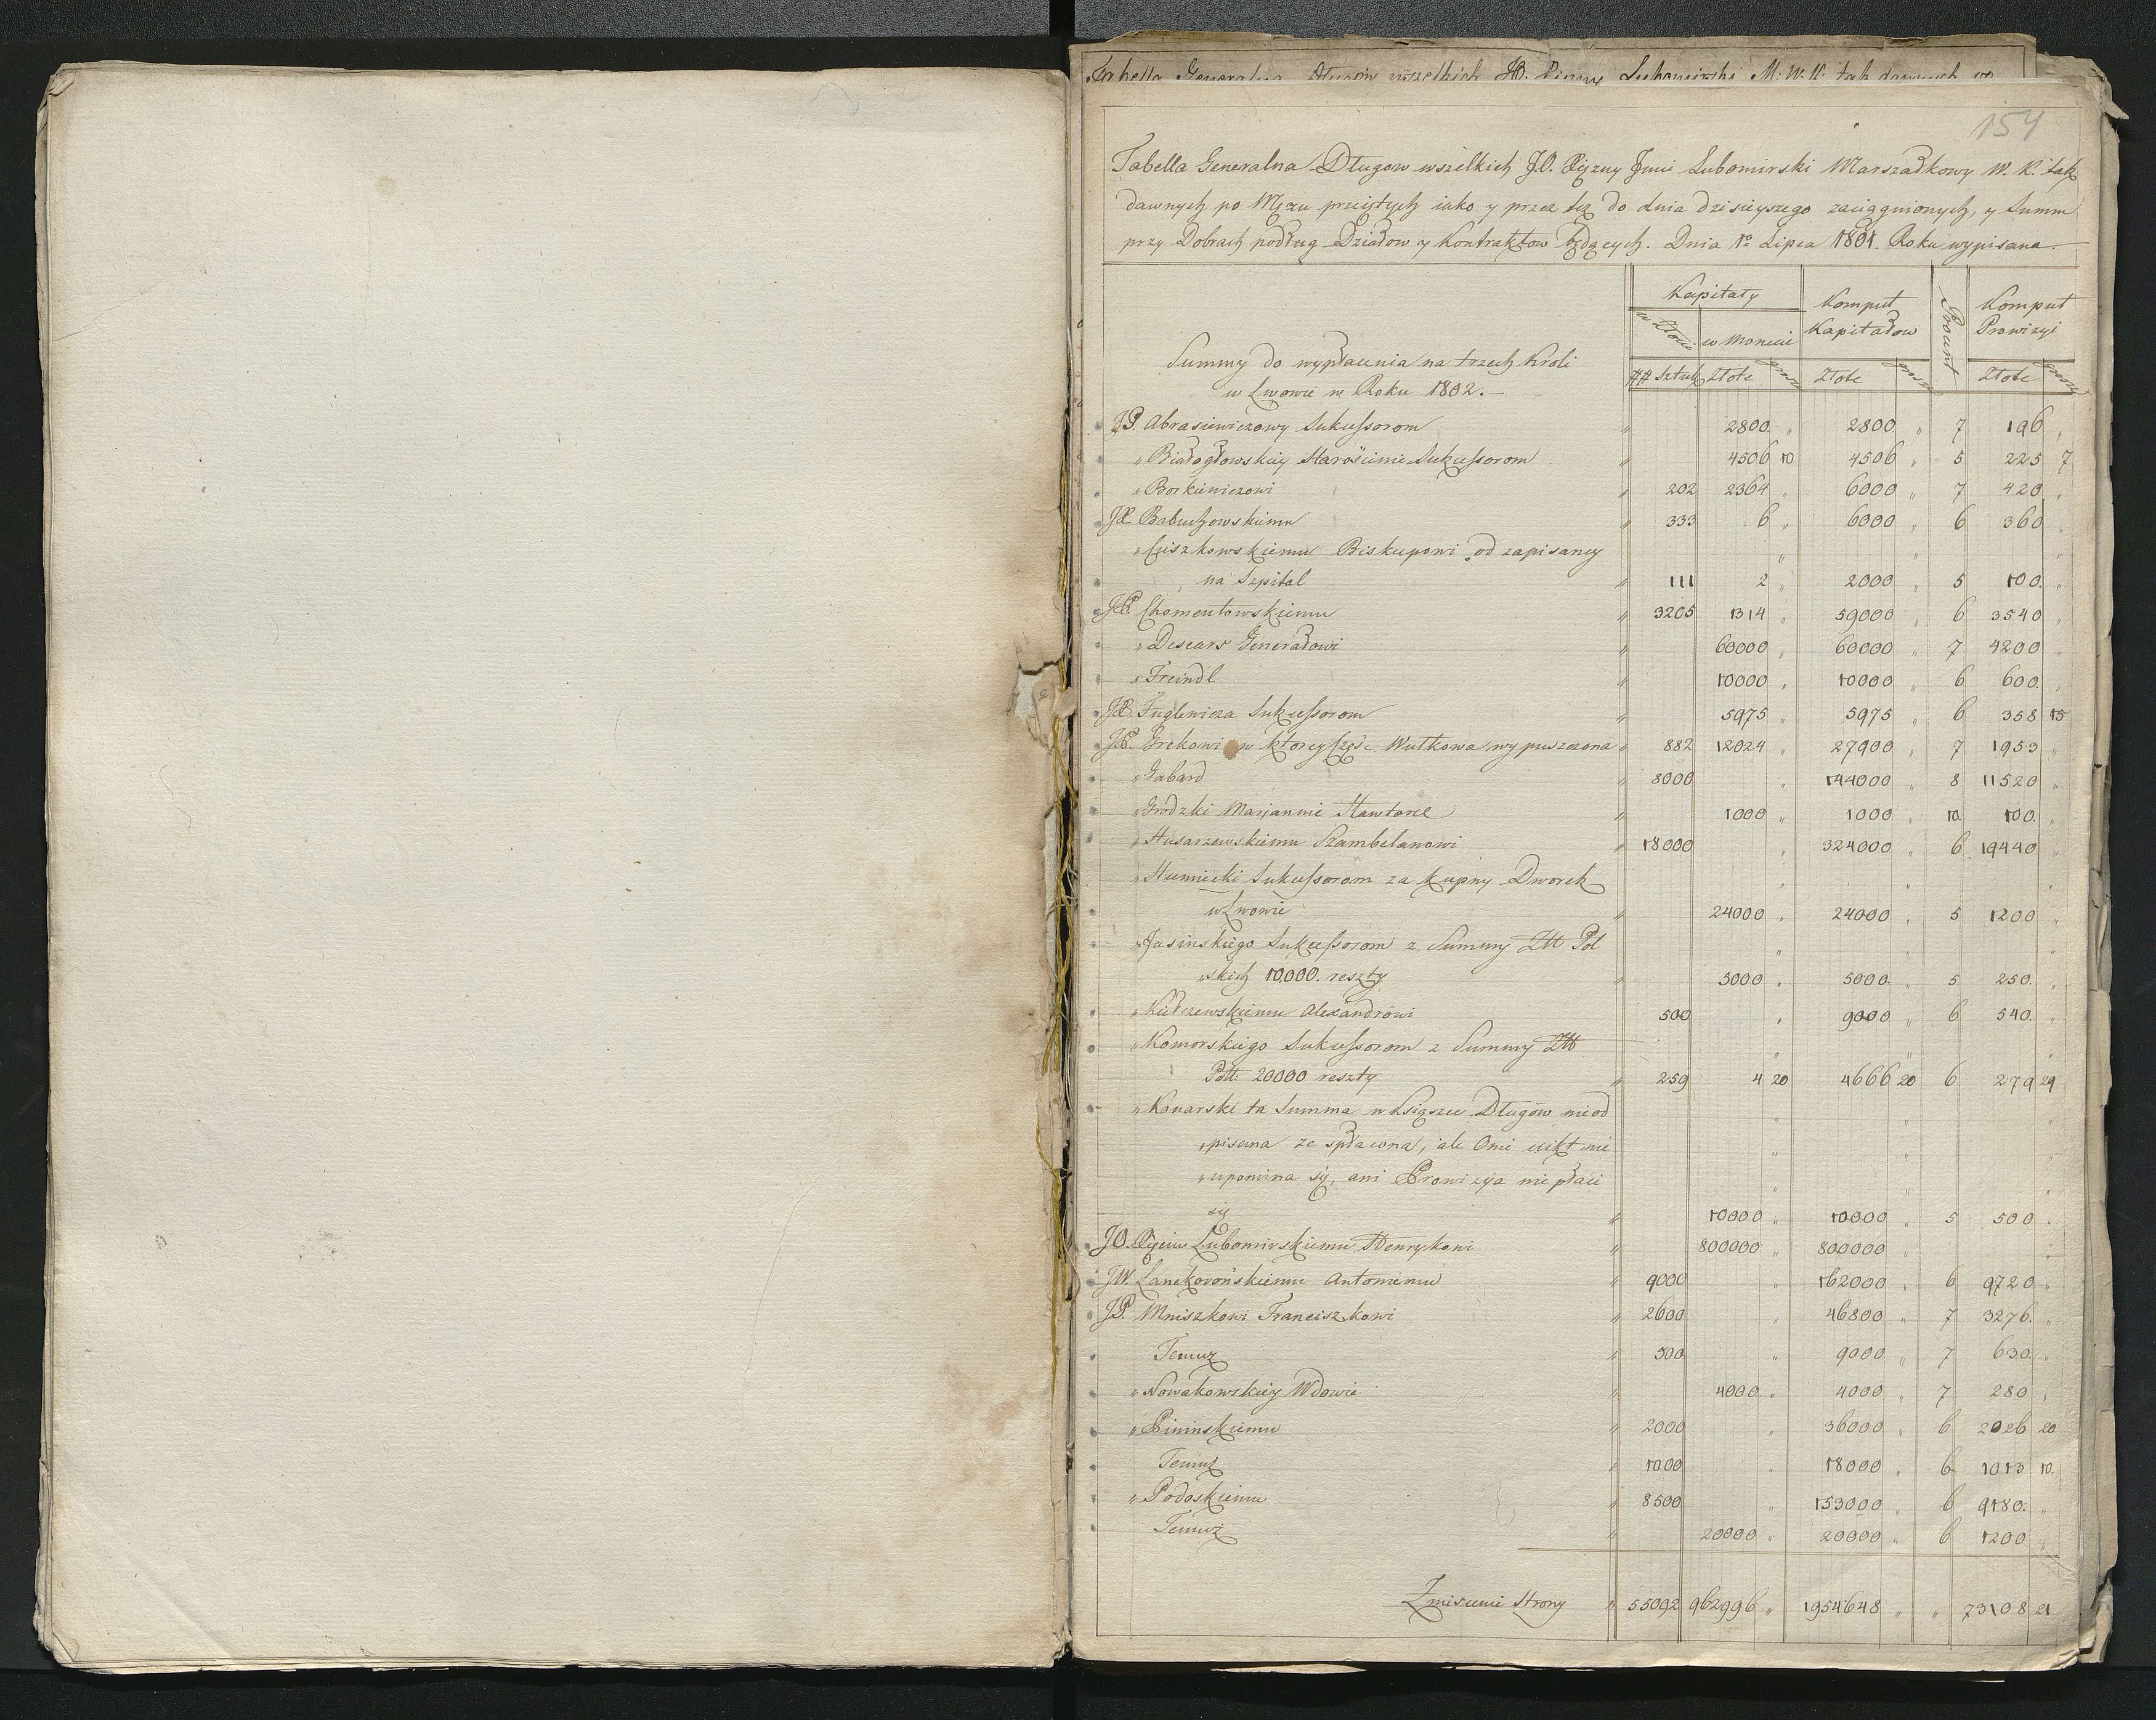 Tabella Generalna Długow wszelkich JO. Xiężny Lubomirski M. W. K. tak dawnych
154
Tabella Generalna Długow wszelkich J.O. Xiężny Jmci Lubomirski Marszałkowy W. K. tak
dawnych po Mężu przeiętych iako y przez też do dnia dzisieyszego zaciągnionych, y Summ
przy Dobrach podług Działow y Kontraktow będących. Dnia 1º Lipca 1801. Roku wypisana.
Kapitały Komput Kapitałow Procent Komput Prowizyi
w Złocie w Monecie
## Sztuk Złote grosz Złote grosz Złote grosz
Summy do wypłacenia na trzech Kroli
w Lwowie w Roku 1802.
JP. Abrasiewiczowy Sukcessorom " 2800 " 2800 " 7 196 "
" Białogłowskiey Starościnie Sukcessorom " 4506 10 4506 " 5 225 7
" Borkiewiczowi " 202 2364 " 6000 " 7 420 "
JX. Babuchowskiemu " 333 6 " 6000 " 6 360 "
" Ciszkowskiemu Biskupowi od zapisaney
na Szpital " 111 2 " 2000 " 5 100. "
JP. Chomentowskiemu " 3205 1314 " 59000 " 6 3540 "
" Descars Generałowi " 60000 " 60000 " 7 4200 "
" Freindl " 10000 " 10000 " 6 600. "
JX. Fuglewicza Sukcessorom " 5975 " 5975 " 6 358 15
JP. Grekowi w ktorey Część Wutkowa wypuszczona " 882 12024 " 27900 " 7 1953 "
" Gabard " 8000 " 144000 " 8 11520 "
" Grodzki Marjannie " 1000 " 1000 " 10. 100. "
" Husarzewskiemu Szambelanowi " 18000 " 324000 " 6 19440 "
" Humiecki Sukcessorom za kupny Dworek
w Lwowie " 24000 " 24000 " 5 1200 "
" Jasinskiego Sukcessorom z Summy Złt Pol
" skich 10,000. reszty " 5000 " 5000. " 5 250. "
" Kiełczewskiemu Alexandrowi " 500 " 9000 " 6 540. "
" Komorskiego Sukcessorom z Summy Złt
Poll: 20000 reszty " 259 4 20 4666 20 6 279 29
" Konarski ta Summa w Xiąszce Długow nieod
" pisana że spłacona, ale Onie nikt nie
" upomina się, ani Prowizya nie płaci
się " 10000 " 10000 " 5 500 "
JO. Xięciu Lubomirskiemu Henrykowi " 800000 " 800000 "
JW. Lanckorońskiemu Antoniemu " 9000 " 162000 " 6 9720 "
JP. Mniszkowi Franciszkowi " 2600 " 46800 " 7 3276. "
Temuż " 500 " 9000 " 7 630. "
" Nowakowskiey Wdowie " 4000 " 4000 " 7 280 "
" Pininskiemu " 2000 " 36000 " 6 2026 20
Temuż " 1000 " 18000 " 6 1013 10.
" Podoskiemu " 8500 " 153000 " 6 9180. "
Temuż " 20000 " 20000 " 6 1200 "
Zniesienie Strony " 55092 962996 " 1954648 " " 73108 21